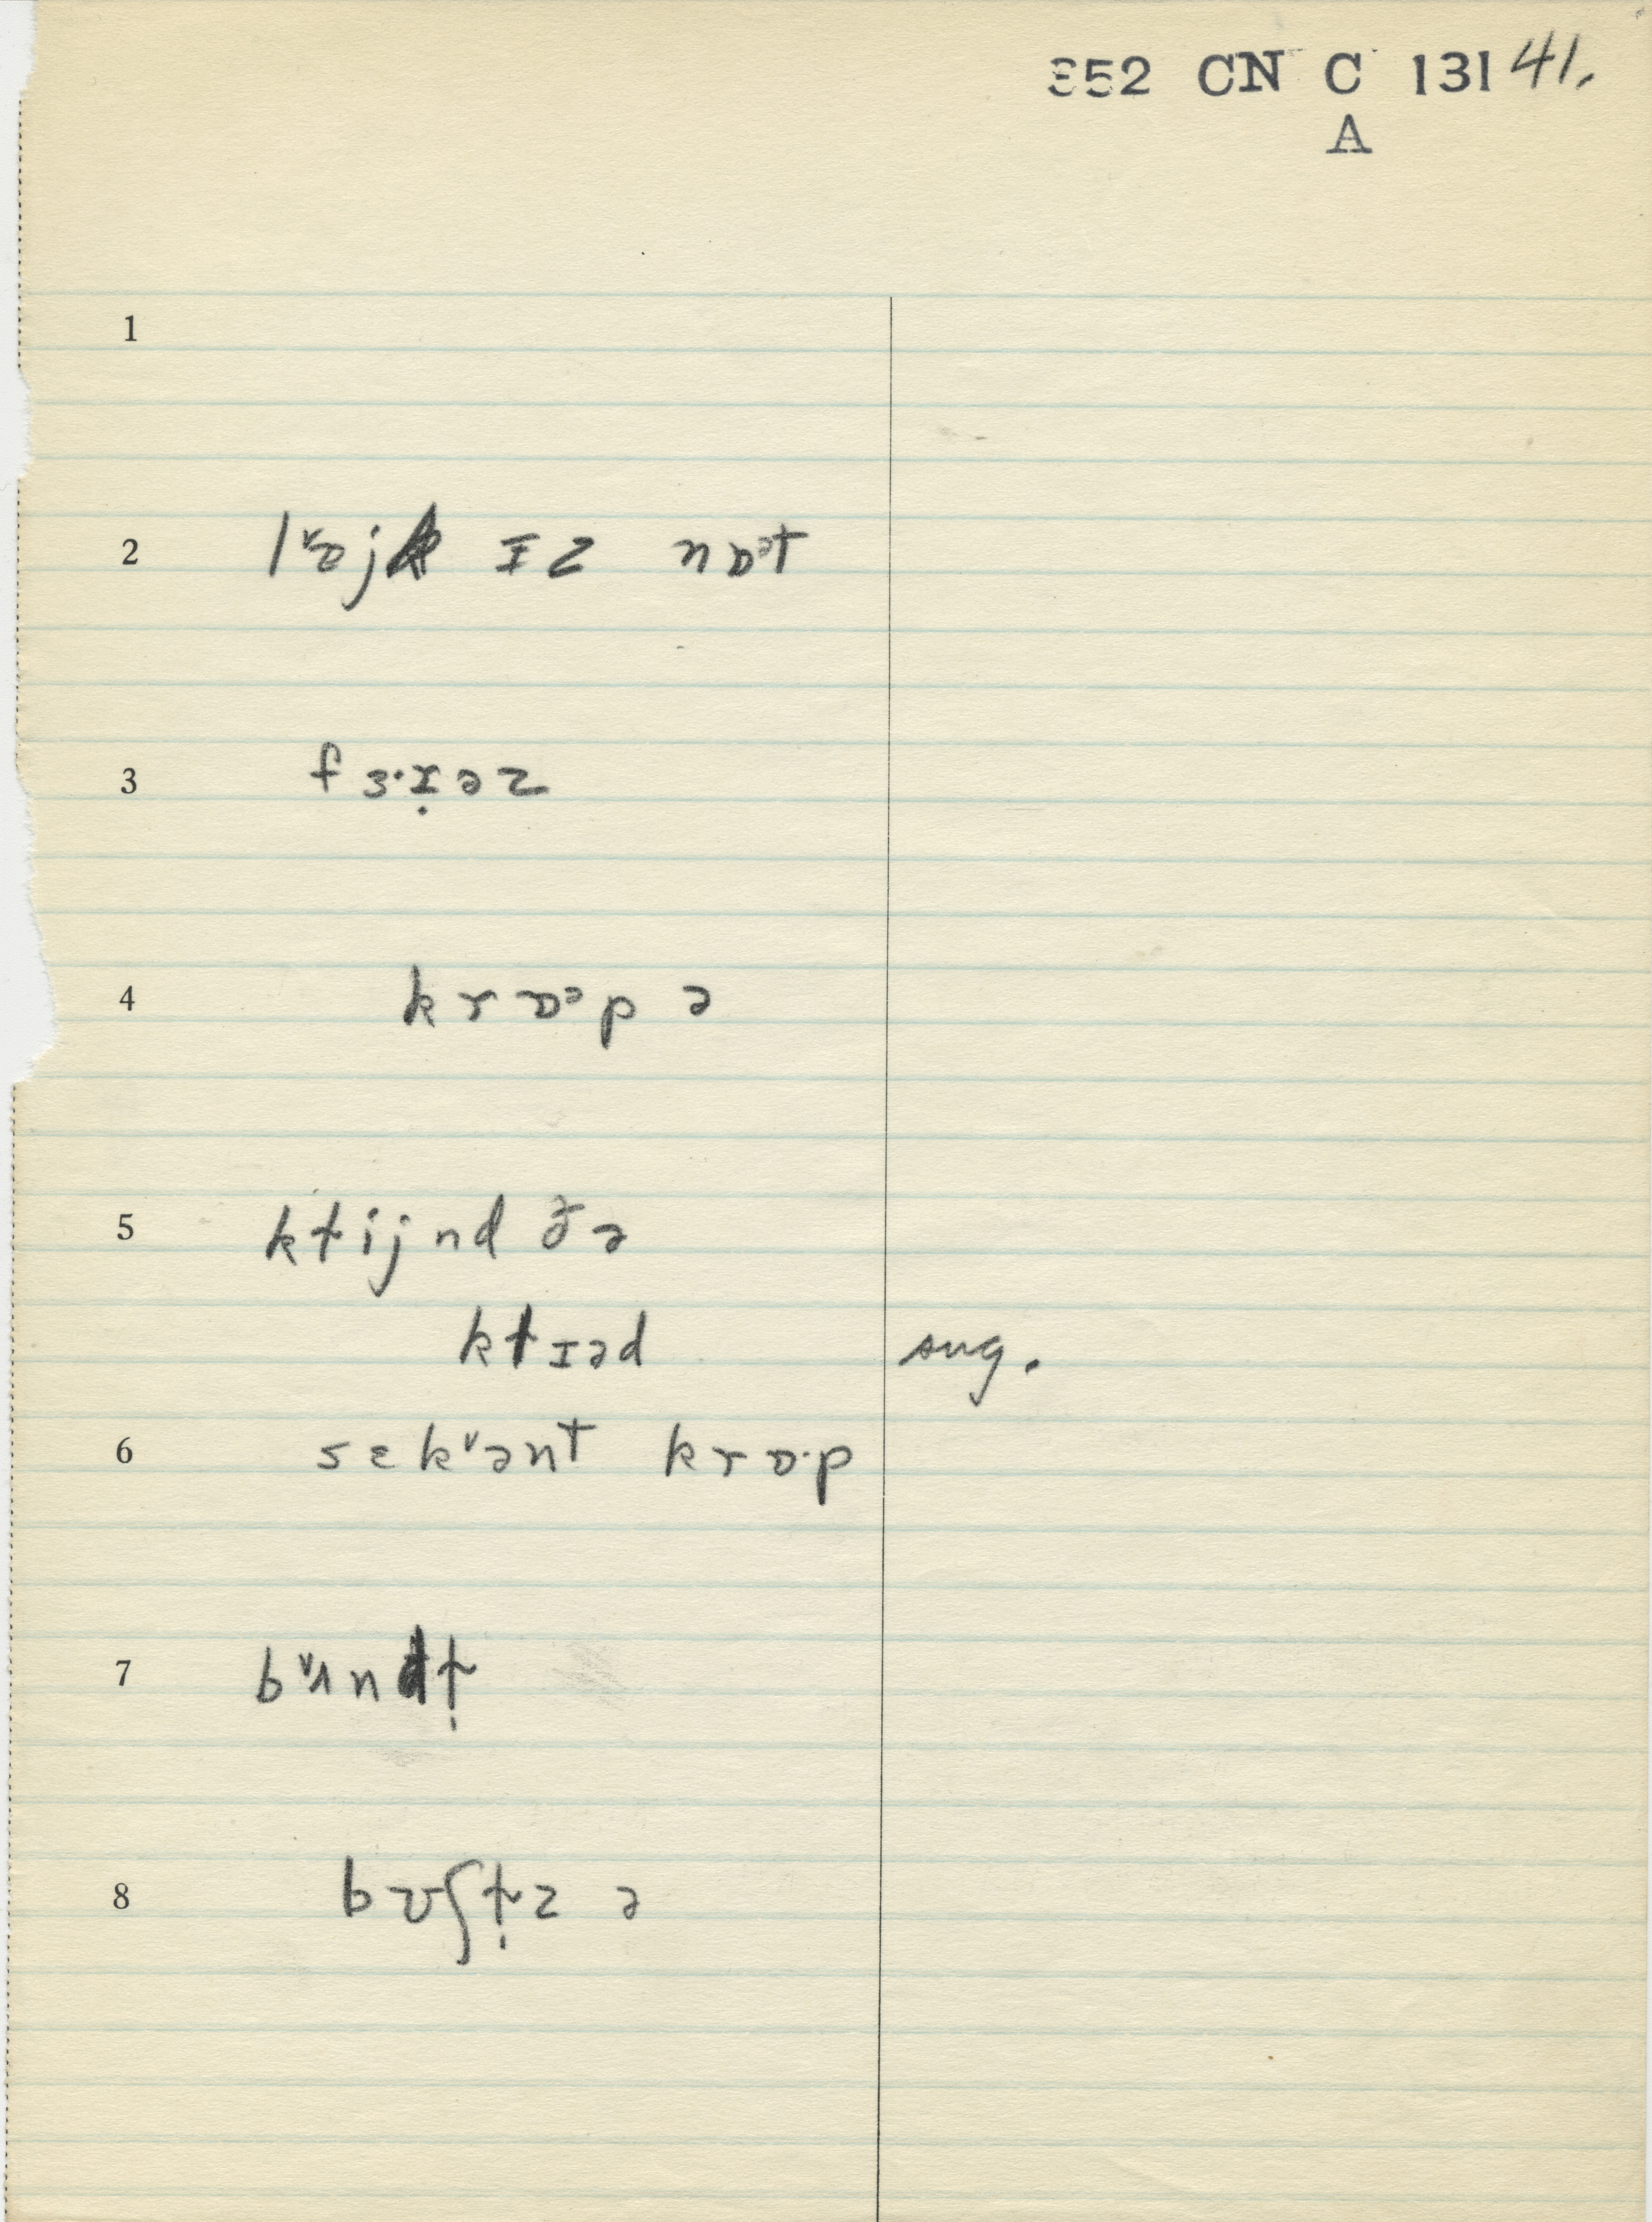 352 CN C 131 41.
A
1
2 ɪz nɒᵊt
3 fɜ·ɪ̣əz
4 krɒᵊp ə
5 kɫijnd ðə
kɫɪəd sug.
6 sɛk˅ənt krɒ·p
7 b˅ʌndɫ̩
8 bʊʃɫ̩z ə